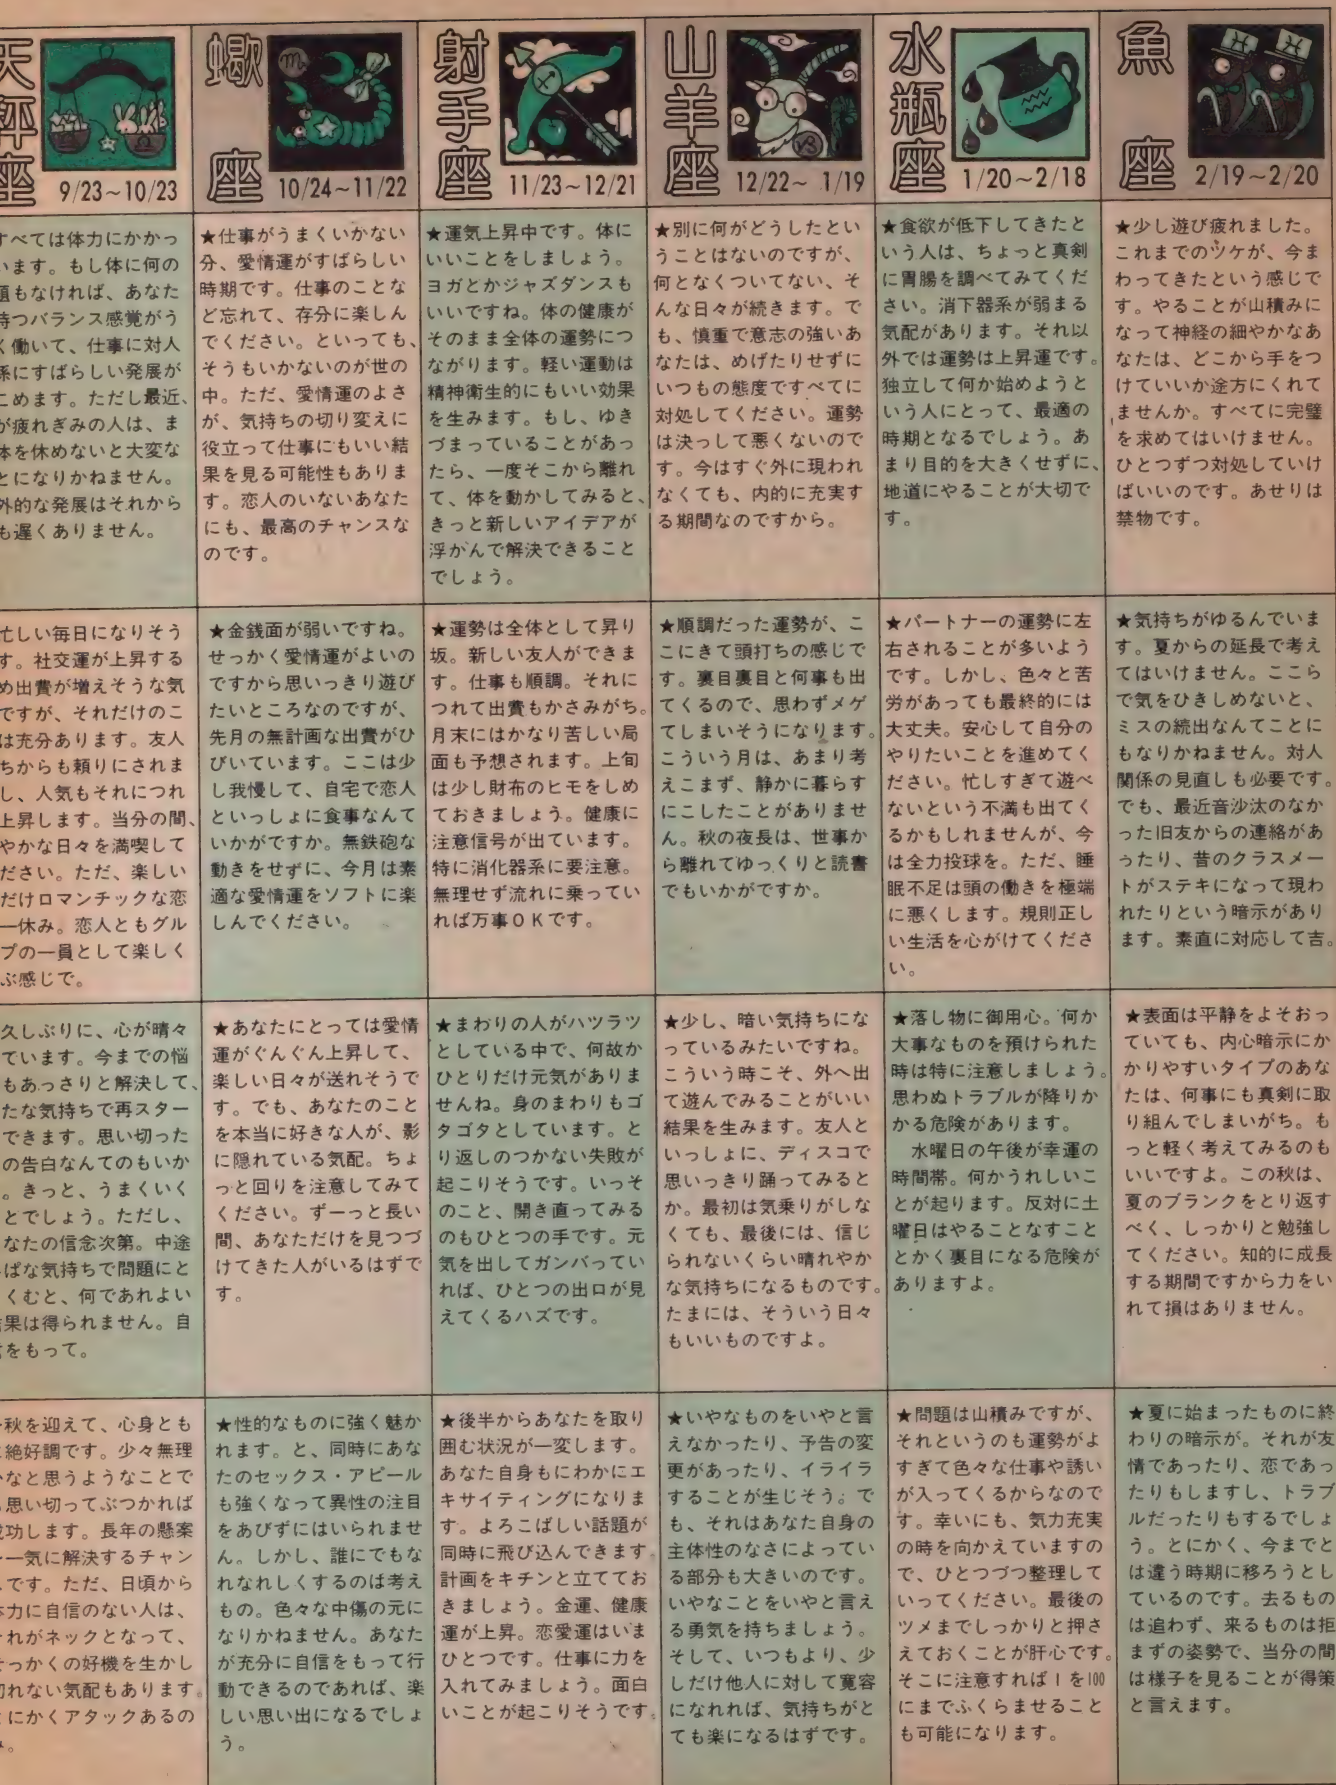 天秤座
9/23~10/23
蠍座
10/24~11/22
射手座
11/23~12/21
山羊座
12/22~ 1/19
水瓶座
1/20~2/18
魚座
2/19~2/20
すべては体力にかかっ
います。もし体に何の
題もなければ、あなた
持つバランス感覚がう
く働いて、仕事に対人
係にすばらしい発展が
こめます。ただし最近、
が疲れぎみの人は、ま
体を休めないと大変な
とになりかねません。
外的な発展はそれから
も遅くありません。
★仕事がうまくいかない
分、愛情運がすばらしい
時期です。仕事のことな
ど忘れて、存分に楽しん
でください。といっても、
そうもいかないのが世の
中。ただ、愛情運のよさ
が、気持ちの切り変えに
役立って仕事にもいい結
果を見る可能性もありま
す。恋人のいないあなた
にも、最高のチャンスな
のです。
★運気上昇中です。体に
いいことをしましょう。
ヨガとかジャズダンスも
いいですね。体の健康が
そのまま全体の運勢につ
ながります。軽い運動は
精神衛生的にもいい効果
を生みます。もし、ゆき
づまっていることがあっ
たら、一度そこから離れ
て、体を動かしてみると、
きっと新しいアイデアが
浮かんで解決できること
でしょう。
★別に何がどうしたとい
うことはないのですが、
何となくついてない、そ
んな日々が続きます。で
も、慎重で意志の強いあ
なたは、めげたりせずに
いつもの態度ですべてに
対処してください。運勢
は決っして悪くないので
す。今はすぐ外に現われ
なくても、内的に充実す
る期間なのですから。
★食欲が低下してきたと
いう人は、ちょっと真剣
に胃腸を調べてみてくだ
さい。消下器系が弱まる
気配があります。それ以
外では運勢は上昇運です。
独立して何か始めようと
いう人にとって、最適の
時期となるでしょう。あ
まり目的を大きくせずに、
地道にやることが大切で
す。
★少し遊び疲れました。
これまでのツケが、今ま
わってきたという感じで
す。やることが山積みに
なって神経の細やかなあ
なたは、どこから手をつ
けていいか途方にくれて
ませんか。すべてに完璧
を求めてはいけません。
ひとつずつ対処していけ
ばいいのです。あせりは
禁物です。
忙しい毎日になりそう
す。社交運が上昇する
め出費が増えそうな気
ですが、それだけのこ
は充分あります。友人
ちからも頼りにされま
し、人気もそれにつれ
上昇します。当分の間、
やかな日々を満喫して
ださい。ただ、楽しい
だけロマンチックな恋
一休み。恋人ともグル
プの一員として楽しく
ぶ感じで。
★金銭面が弱いですね。
せっかく愛情運がよいの
ですから思いっきり遊び
たいところなのですが、
先月の無計画な出費がひ
びいています。ここは少
し我慢して、自宅で恋人
といっしょに食事なんて
いかがですか。無鉄砲な
動きをせずに、今月は素
適な愛情運をソフトに楽
しんでください。
★運勢は全体として昇り
坂。新しい友人ができま
す。仕事も順調。それに
つれて出費もかさみがち。
月末にはかなり苦しい局
面も予想されます。上旬
は少し財布のヒモをしめ
ておきましょう。健康に
注意信号が出ています。
特に消化器系に要注意。
無理せず流れに乗ってい
れば万事OKです。
★順調だった運勢が、こ
こにきて頭打ちの感じで
す。裏目裏目と何事も出
てくるので、思わずメゲ
てしまいそうになります。
こういう月は、あまり考
えこまず、静かに暮らす
にこしたことがありませ
ん。秋の夜長は、世事か
ら離れてゆっくりと読書
でもいかがですか。
★パートナーの運勢に左
右されることが多いよう
です。しかし、色々と苦
労があっても最終的には
大丈夫。安心して自分の
やりたいことを進めてく
ださい。忙しすぎて遊べ
ないという不満も出てく
るかもしれませんが、今
は全力投球を。ただ、睡
眠不足は頭の働きを極端
に悪くします。規則正し
い生活を心がけてくださ
い。
★気持ちがゆるんでいま
す。夏からの延長で考え
てはいけません。ここら
で気をひきしめないと、
ミスの続出なんてことに
もなりかねません。対人
関係の見直しも必要です。
でも、最近音沙汰のなか
った旧友からの連絡があ
ったり、昔のクラスメー
トがステキになって現わ
れたりという暗示があり
ます。素直に対応して吉。
久しぶりに、心が晴々
ています。今までの悩
もあっさりと解決して、
たな気持ちで再スター
できます。思い切った
の告白なんてのもいか
。きっと、うまくいく
とでしょう。ただし、
なたの信念次第。中途
ぱな気持ちで問題にと
くむと、何であれよい
結果は得られません。自
信をもって。
★あなたにとっては愛情
運がぐんぐん上昇して、
楽しい日々が送れそうで
す。でも、あなたのこと
を本当に好きな人が、影
に隠れている気配。ちょ
っと回りを注意してみて
ください。ずーっと長い
間、あなただけを見つづ
けてきた人がいるはずで
す。
★まわりの人がハツラツ
としている中で、何故か
ひとりだけ元気がありま
せんね。身のまわりもゴ
タゴタとしています。と
り返しのつかない失敗が
起こりそうです。いっそ
のこと、開き直ってみる
のもひとつの手です。元
気を出してガンバってい
れば、ひとつの出口が見
えてくるハズです。
★少し、暗い気持ちにな
っているみたいですね。
こういう時こそ、外へ出
て遊んでみることがいい
結果を生みます。友人と
いっしょに、ディスコで
思いっきり踊ってみると
か。最初は気乗りがしな
くても、最後には、信じ
られないくらい晴れやか
な気持ちになるものです。
たまには、そういう日々
もいいものですよ。
★落し物に御用心。何か
大事なものを預けられた
時は特に注意しましょう。
思わぬトラブルが降りか
かる危険があります。
水曜日の午後が幸運の
時間帯。何かうれしいこ
とが起ります。反対に土
曜日はやることなすこと
とかく裏目になる危険が
ありますよ。
★表面は平静をよそおっ
ていても、内心暗示にか
かりやすいタイプのあな
たは、何事にも真剣に取
り組んでしまいがち。も
っと軽く考えてみるのも
いいですよ。この秋は、
夏のブランクをとり返す
べく、しっかりと勉強し
てください。知的に成長
する期間ですから力をい
れて損はありません。
秋を迎えて、心身とも
絶好調です。少々無理
なと思うようなことで
思い切ってぶつかれば
成功します。長年の懸案
一気に解決するチャン
です。ただ、日頃から
体力に自信のない人は、
それがネックとなって、
せっかくの好機を生かし
切れない気配もあります。
とにかくアタックあるの
み。
★性的なものに強く魅か
れます。と、同時にあな
たのセックス・アピール
も強くなって異性の注目
をあびずにはいられませ
ん。しかし、誰にでもな
れなれしくするのは考え
もの。色々な中傷の元に
なりかねません。あなた
が充分に自信をもって行
動できるのであれば、楽
しい思い出になるでしょ
う。
★後半からあなたを取り
囲む状況が一変します。
あなた自身もにわかにエ
キサイティングになりま
す。よろこばしい話題が
同時に飛び込んできます。
計画をキチンと立ててお
きましょう。金運、健康
運が上昇。恋愛運はいま
ひとつです。仕事に力を
入れてみましょう。面白
いことが起こりそうです。
★いやなものをいやと言
えなかったり、予告の変
更があったり、イライラ
することが生じそう。で
も、それはあなた自身の
主体性のなさによってい
る部分も大きいのです。
いやなことをいやと言え
る勇気を持ちましょう。
そして、いつもより、少
しだけ他人に対して寛容
になれれば、気持ちがと
ても楽になるはずです。
★問題は山積みですが、
それというのも運勢がよ
すぎて色々な仕事や誘い
が入ってくるからなので
す。幸いにも、気力充実
の時を向かえていますの
で、ひとつづつ整理して
いってください。最後の
ツメまでしっかりと押さ
えておくことが肝心です。
そこに注意すれば1を100
にまでふくらませること
も可能になります。
★夏に始まったものに終
わりの暗示が。それが友
情であったり、恋であっ
たりもしますし、トラブ
ルだったりもするでしょ
う。とにかく、今までと
は違う時期に移ろうとし
ているのです。去るもの
は追わず、来るものは拒
まずの姿勢で、当分の間
は様子を見ることが得策
と言えます。